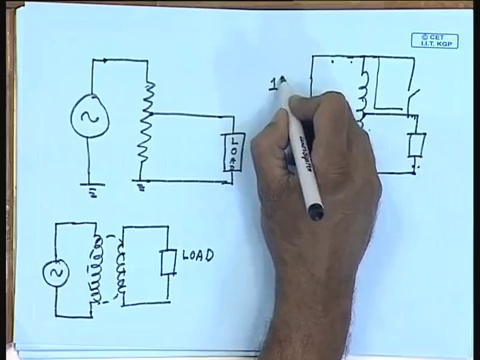 © CET
I.I.T. KGP
LOAD
LOAD
1